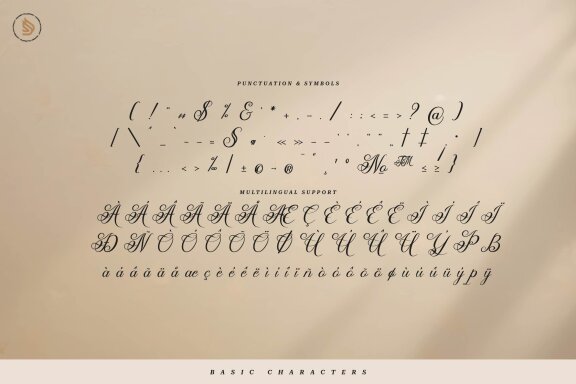 PUNCTUATION & SYMBOLS
( ! " „ $ % & ' * + , - . / : ; < = > ? @ )
| \
{ . . . < > ‰ № ™ ≤ ≥ }
MULTILINGUAL SUPPORT
À Á Â Ã Ä Å Æ Ç È É Ê Ë Ì Í Î Ï
Ð Ñ Ò Ó Ô Õ Ö Ø Ù Ú Û Ü Ý Þ ß
à á â ã ä å æ ç è é ê ë ì í î ï ñ ò ó ô õ ö ø ù ú û ü ý þ ÿ
BASIC CHARACTERS